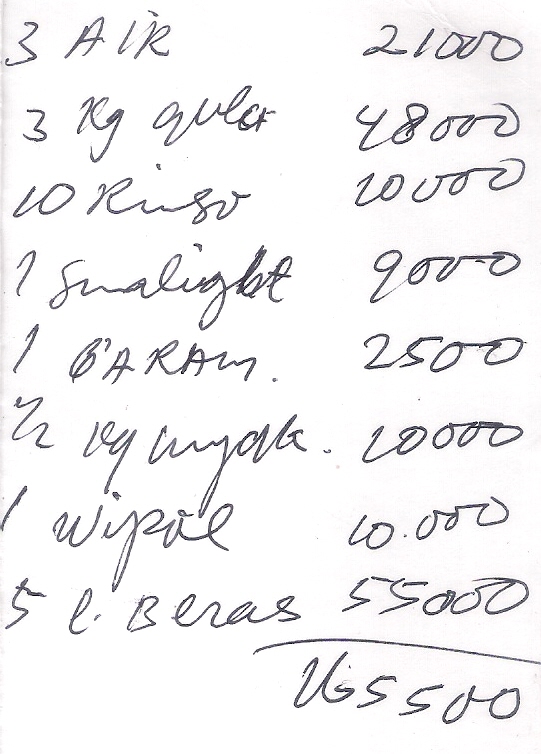 3 AIR 21000
3 Kg gula 48000
10 Rinso 10000
1 Sunlight 9000
1 GARAM. 2500
1/2 Kg minyak. 10000
1 Wipol 10.000
5 l. Beras 55000
165500